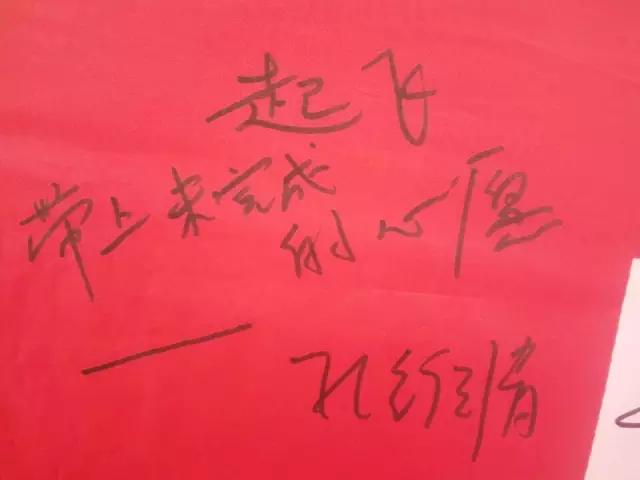 起飞
带上未完成
的心愿
——孔